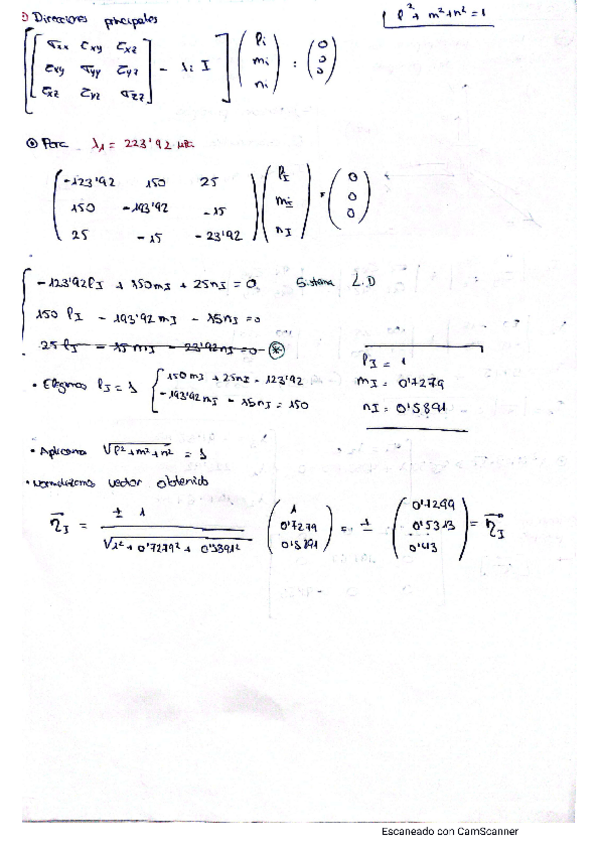 Direcciones principales
l² + m² + n² = 1
[[σxx τxy τxz
τxy σyy τyz
τxz τyz σzz] - λi I] (li mi ni) = (0 0 0)
Para λ1 = 223'92 MPa
(-123'92 150 25
150 -193'92 -15
25 -15 -23'92) (lI mI nI) = (0 0 0)
-123'92lI + 150mI + 25nI = 0 Sistema L.D
150 lI - 193'92 mI - 15nI = 0
25 lI - 15 mI - 23'92nI = 0 (*)
lI = 1
• Elegimos lI = 1 { 150mI + 25nI = 123'92
mI = 0'7279
-193'92mI - 15nI = 150
nI = 0'5891
• Aplicamos √l²+m²+n² = 1
• Normalizamos vector obtenido
ηI = ± 1 / √1² + 0'7279² + 0'5891² (1 0'7279 0'5891) = ± (0'7299 0'5313 0'43) = ηI
Escaneado con CamScanner